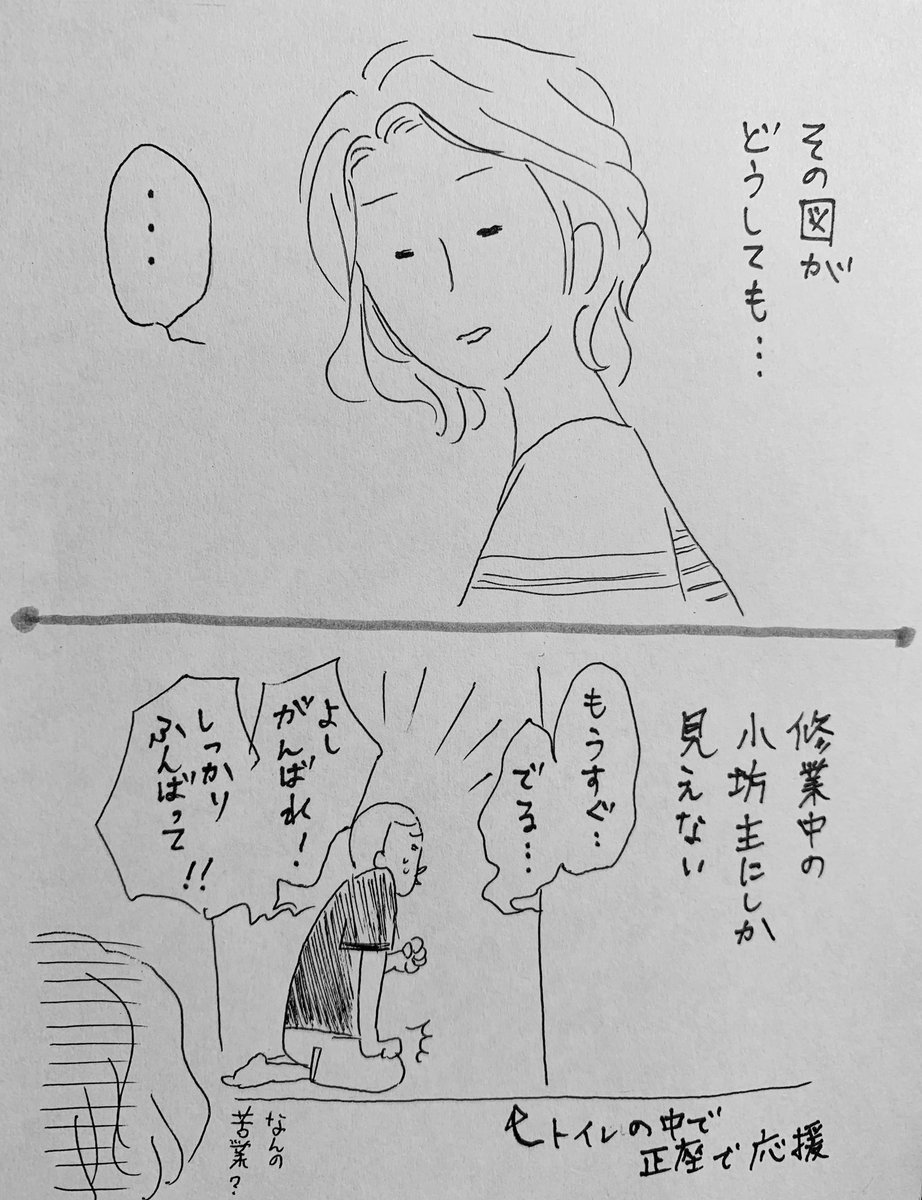 その図が
どうしても…
…
修業中の
小坊主にしか
見えない
もうすぐ…
でる…
よし
がんばれ!
しっかり
ふんばって!!
トイレの中で
正座で応援
なんの
苦業?